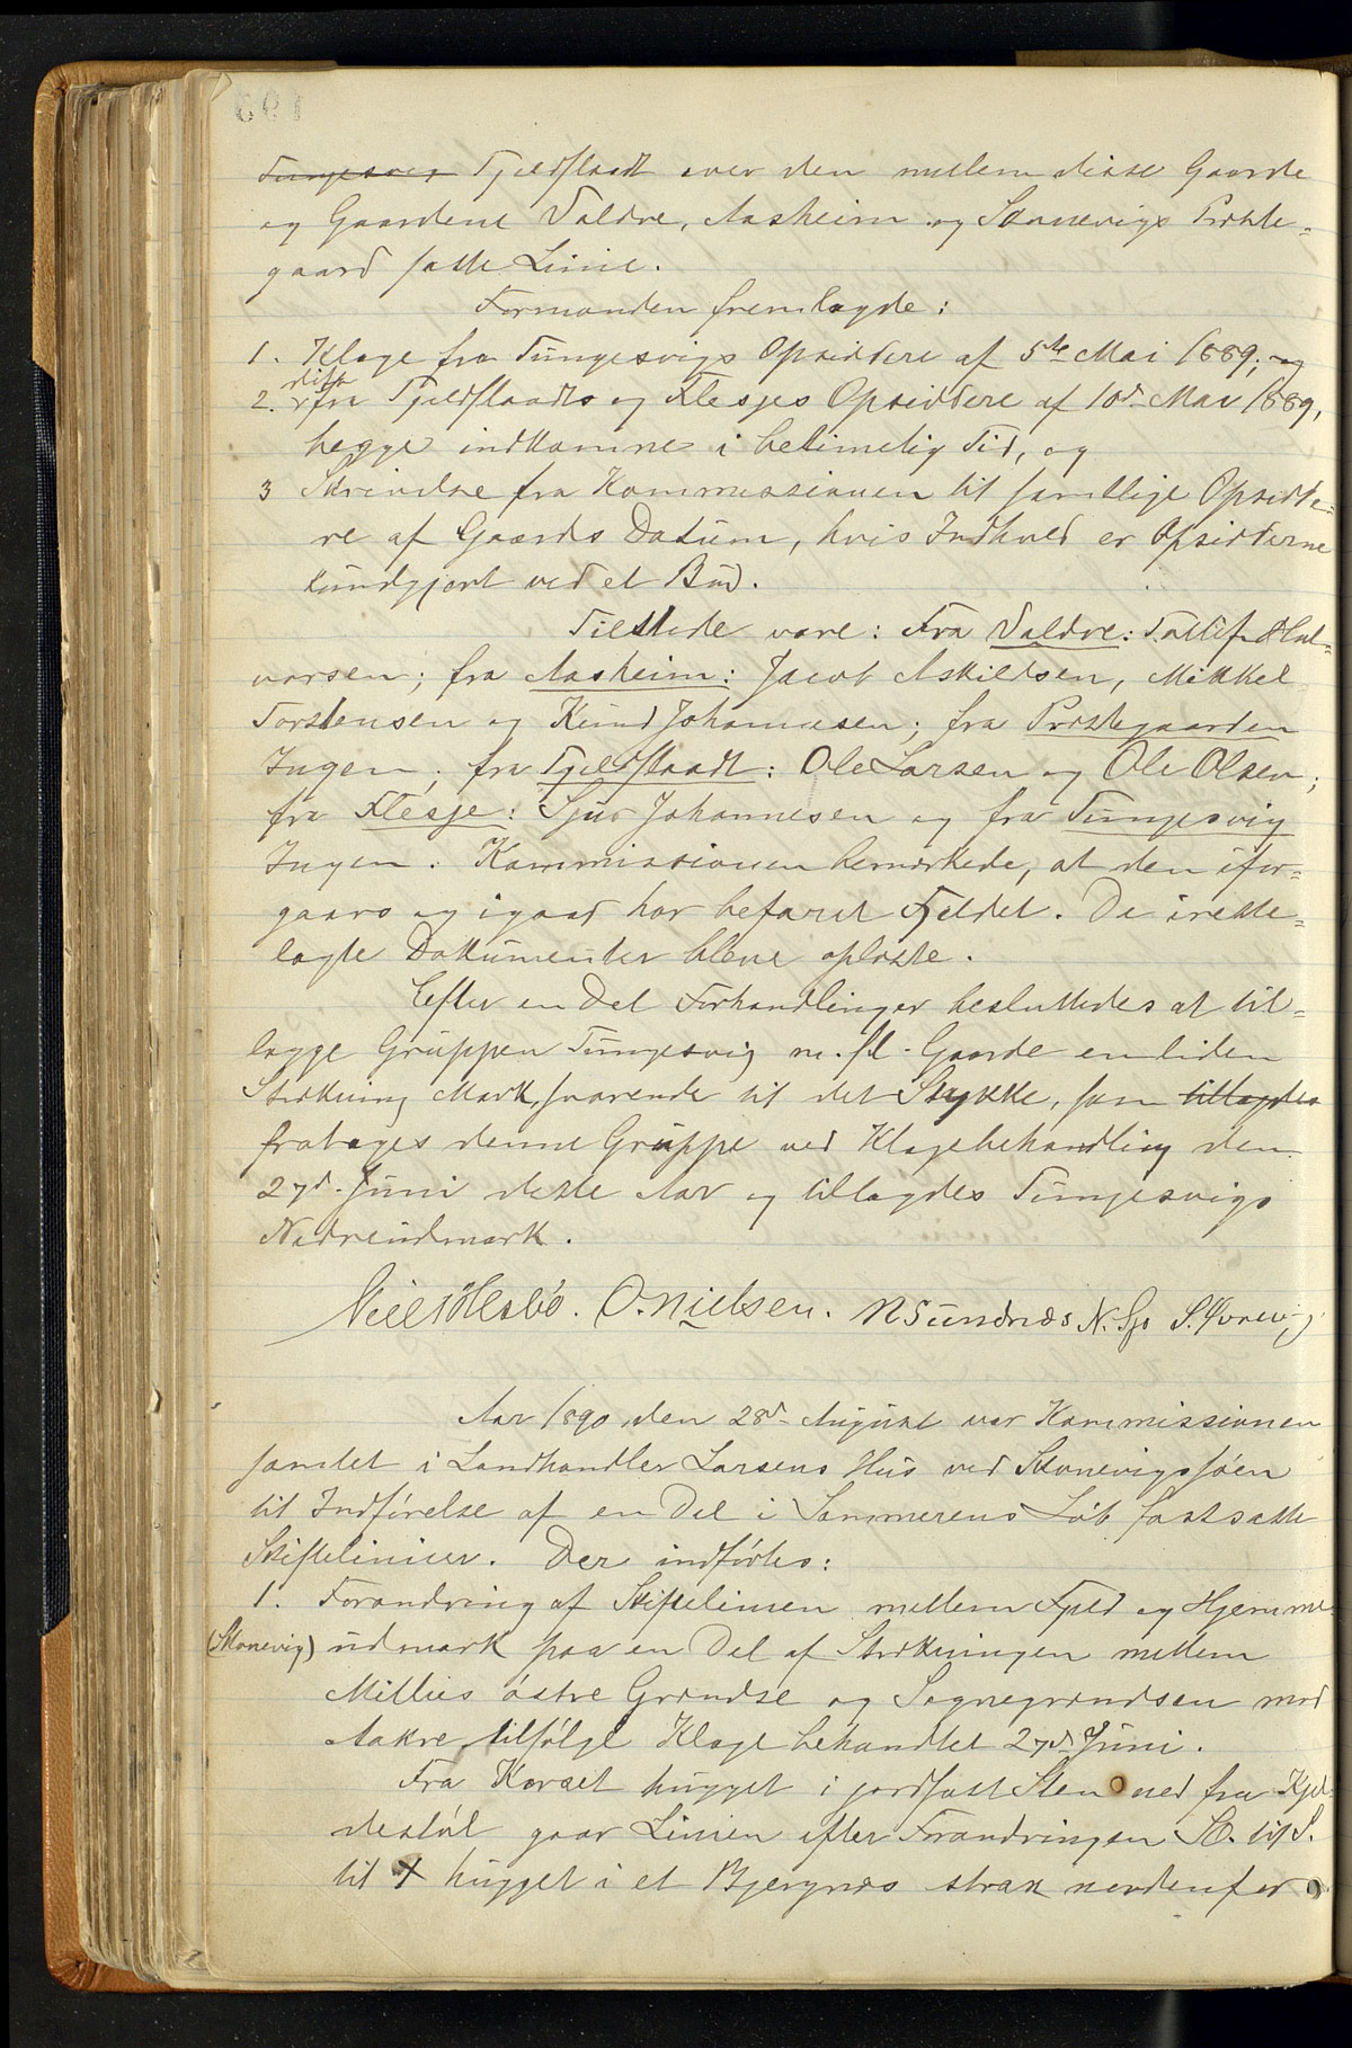 Tungesvig Fjeldstadt over den mellem disse Gaarde
og Gaardene Valdre, Aasheim og Skonevigs Præste-
gaard satte Linie.
Formanden fremlagde:
1. Klage fra Tungesvigs Opsiddere af 5te Mai 1889; og
2. ditto fra Fjeldstadts og Flesjes Opsiddere af 10d. Mai 1889,
begge indkomne i betimelig Tid, og
3 Skrivelse fra Kommissionen til samtlige Opsidde-
re af Gaards Datum, hvis Indhold er Opsidderne
kundgjort ved et Bud.
Tilstede vare: Fra Valdre: Tollef Hal-
vorsen; fra Aasheim: Jacob Askildsen, Mikkel
Torstensen og Knud Johannesen; fra Præstegaarden
Ingen; fra Fjeldstadt: Ole Larsen og Ole Olsen;
fra Flesje: Sjur Johannesen og fra Tungesvig
Ingen. Kommissionen bemærkede, at den ifor-
gaars og igaar har befaret Fjeldet. De irette-
lagte Dokumenter bleve oplæste.
Efter en Del Forhandlinger besluttedes at til-
lægge Gruppen Tungesvig m. fl. Gaarde en liden
Strækning Mark, svarende til det Stykke, som tillagdes
fratoges denne Gruppe ved Klagebehandling den
27d. Juni dette Aar og tillagdes Tungesvigs
Nedreudmark.
Niels Ølesbø. O. Nielsen. N Sundnæs N. Sjo S. Kvnevig
Aar 1890 den 28d. August var Kommissionen
samlet i Landhandler Larsens Hus ved Skonevigsjøen
til Indførelse af en Del i Sommerens Løb fastsatte
Skiftelinier. Der indførtes:
1. Forandring af Skiftelinien mellem Fjeld og Hjemme-
(Skonevig) udmark paa en Del af Strækningen mellem
Millies østre Grændse og Sognegrændsen mod
Aakre, tilfølge Klage behandlet 27d. Juni.
Fra Korset hugget i jordfast Sten ned fra Kjel-
destøl gaar Linien efter Forandringen SO. til S.
til X hugget i et Bjergnæs strax nordenfor